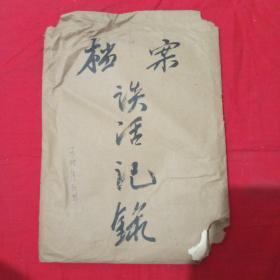 档案
谈话记录